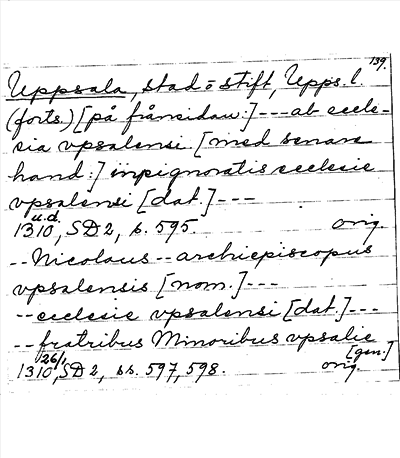 139.
Uppsala, stad o stift, Upps. l.
(forts.) [på frånsidan:] --- ab eccle-
sia vpsalensi. [med senare
hand:] inpignoratis ecclesie
vpsalensi [dat.] ---
u.d.
1310, SD 2, s. 595. orig.
-- Nicolaus -- archiepiscopus
vpsalensis [nom.] ---
-- ecclesie vpsalensi [dat.] ---
-- fratribus Minoribus vpsalie
26/1 [gen.]
1310, SD 2, ss. 597, 598. orig.